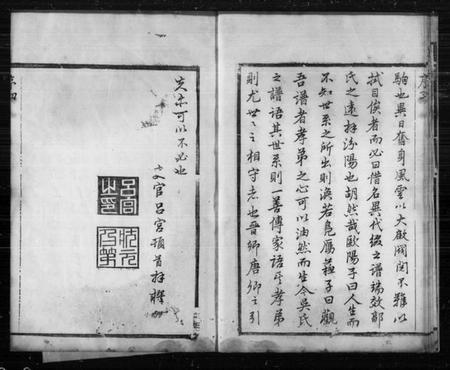 駒也異日奮身風雲以大啟閥閱不難以
拭目俟者而必曰借名異代綴之譜端效郭
氏之遠拜汾陽也胡然哉歐陽子曰人生而
不知世系之所出則渙若鳧雁蘇子曰觀
吾譜者孝弟之心可以油然而生今吳氏
之譜語其世系則一善傳家語乎孝弟
則尤世世之相守者也晉卿唐卿之引
失亦可以不必也
官呂宮頓首拜
呂宮